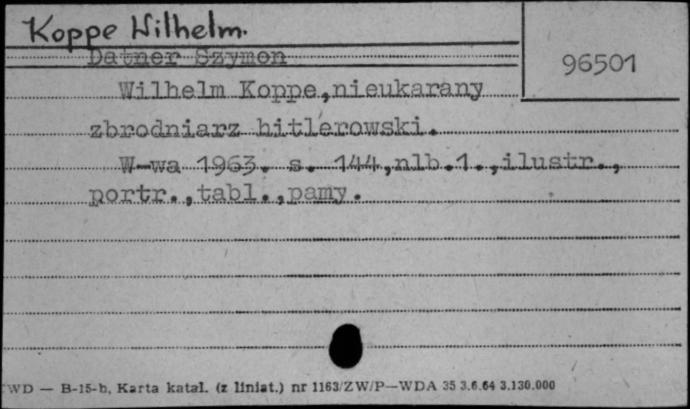 Koppe Wilhelm.
96501
Datner Szymon
Wilhelm Koppe,nieukarany
zbrodniarz hitlerowski.
W-wa 1963. s. 144,nlb.1.,ilustr.,
portr.,tabl.,pamy.
WD — B-15-b, Karta katal. (z liniat.) nr 1163/ZW/P—WDA 35 3.6.64 3.130.000